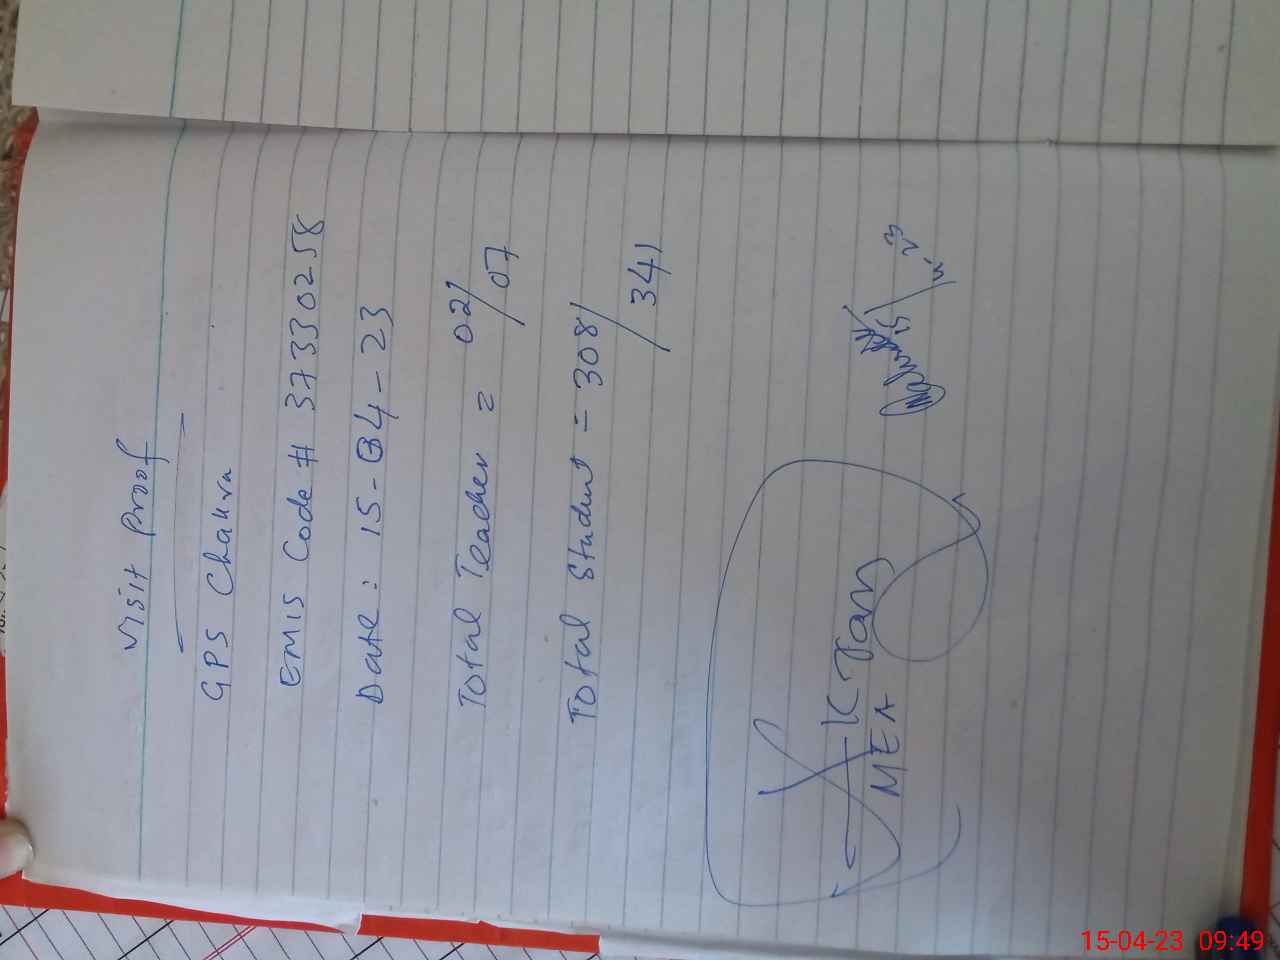 Visit Proof
GPS Chakra
EMIS Code # 37330258
Date: 15-04-23
Total Teacher = 02/07
Total Student = 308/341
K Jan
MEA
15/4-23
15-04-23 09:49